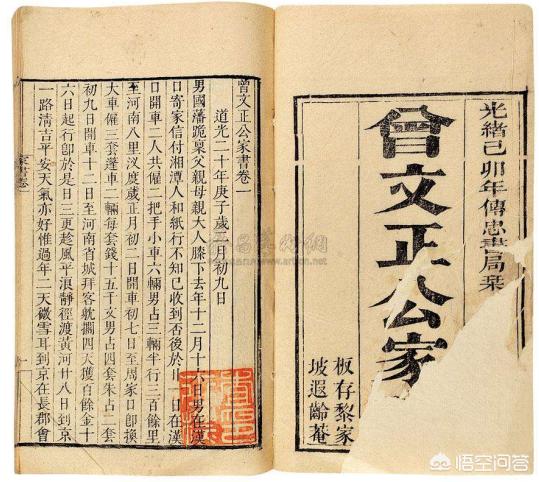 光緒己卯年傳忠書局栞
曾文正公家
板存黎家
坡遐齡菴
曾文正公家書卷一
道光二十年庚子歲二月初九日
男國藩跪稟父親母親大人膝下去年十二月十六日男在漢
口寄家信付湘潭人和紙行不知已收到否後於廿一日在漢
口開車二人共僱二把手小車六輛男占三輛半行三百餘里
至河南八里汊度歲正月初二日開車初七日至周家口即換
大車僱三套篷車二輛每套錢十五千文男占四套朱占二套
初九日開車十二日至河南省城拜客躭擱四天獲百餘金十
六日起行即於是日三更趁風平浪靜徑渡黃河廿八日到京
一路清吉平安天氣亦好惟過年二天微雪耳到京在長郡會
悟空问答